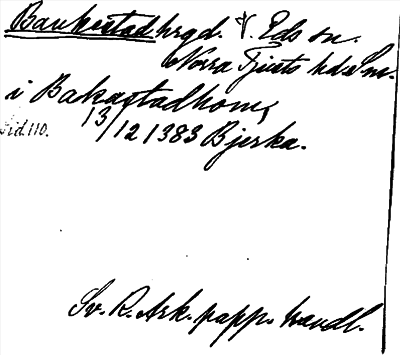 Baukestad hrgd. V. Eds sn.
Norra Tjusts hd. Sm.
i Bakastadhom,
Sid. 110.
13/12 1383 Bjerka.
Sv. R. Ark. papp. handl.